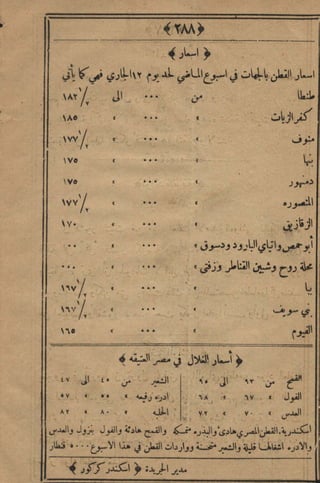 ﴿٢٨٨﴾
﴿ اسعار ﴾
اسعار القطن بالجهات في اسبوع الماضي لحد يوم ١٢ الجاري فهي كما يأتي
طنطا من ٠٠٠ الى ١٨٢ ١/٢
كفر الزيات » ٠٠٠ » ١٨٥
منوف » ٠٠٠ » ١٧٧ ١/٢
بنها » ٠٠٠ » ١٧٥
دمنهور » ٠٠٠ » ١٧٥
المنصوره » ٠٠٠ » ١٧٧ ١/٢
الزقازيق » ٠٠٠ » ١٧٠
أبو حمص واتياي البارود ودسوق » ٠٠٠ » ٠٠٠
محلة روح وشبين القناطر وزفتى » ٠٠٠ » ٠٠٠
ببا » ٠٠٠ » ١٦٧ ١/٢
بني سويف » ٠٠٠ » ١٦٧ ١/٢
الفيوم » ٠٠٠ » ١٦٥
﴿ أسعار الغلال في مصر العتيقه ﴾
القمح من ٦٣ الى ٦٥ الشعير من ٤٥ الى ٤٧
الفول » ٦٧ » ٦٨ ادره رفيعه » ٥٥ » ٥٧
العدس » ٧٠ » ٧٢ الحلبه » ٨٠ » ٨٢
اسكندرية . القطن المصري هادئ والبذره متمسكه والقمح هادئة والفول بنزول والعدس
والادره اشغالها قليلة والشعير متحسنة وواردات القطن في هذا الاسبوع ٥٠٠٠ قنطار
مدير الجريدة ﴿ اسكندر كركور ﴾